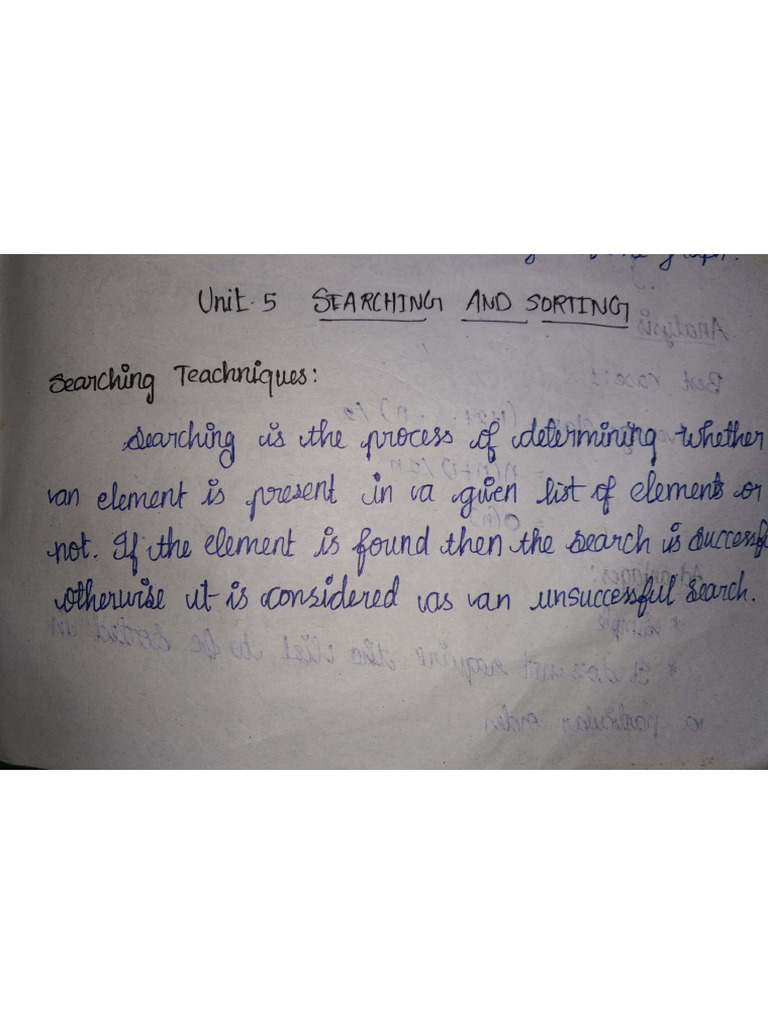 graph.
Unit-5 SEARCHING AND SORTING
Searching Teachniques:
Searching is the process of determining whether
an element is present in a given list of elements or
not. If the element is found then the search is successf
otherwise it is considered as an unsuccessful search.